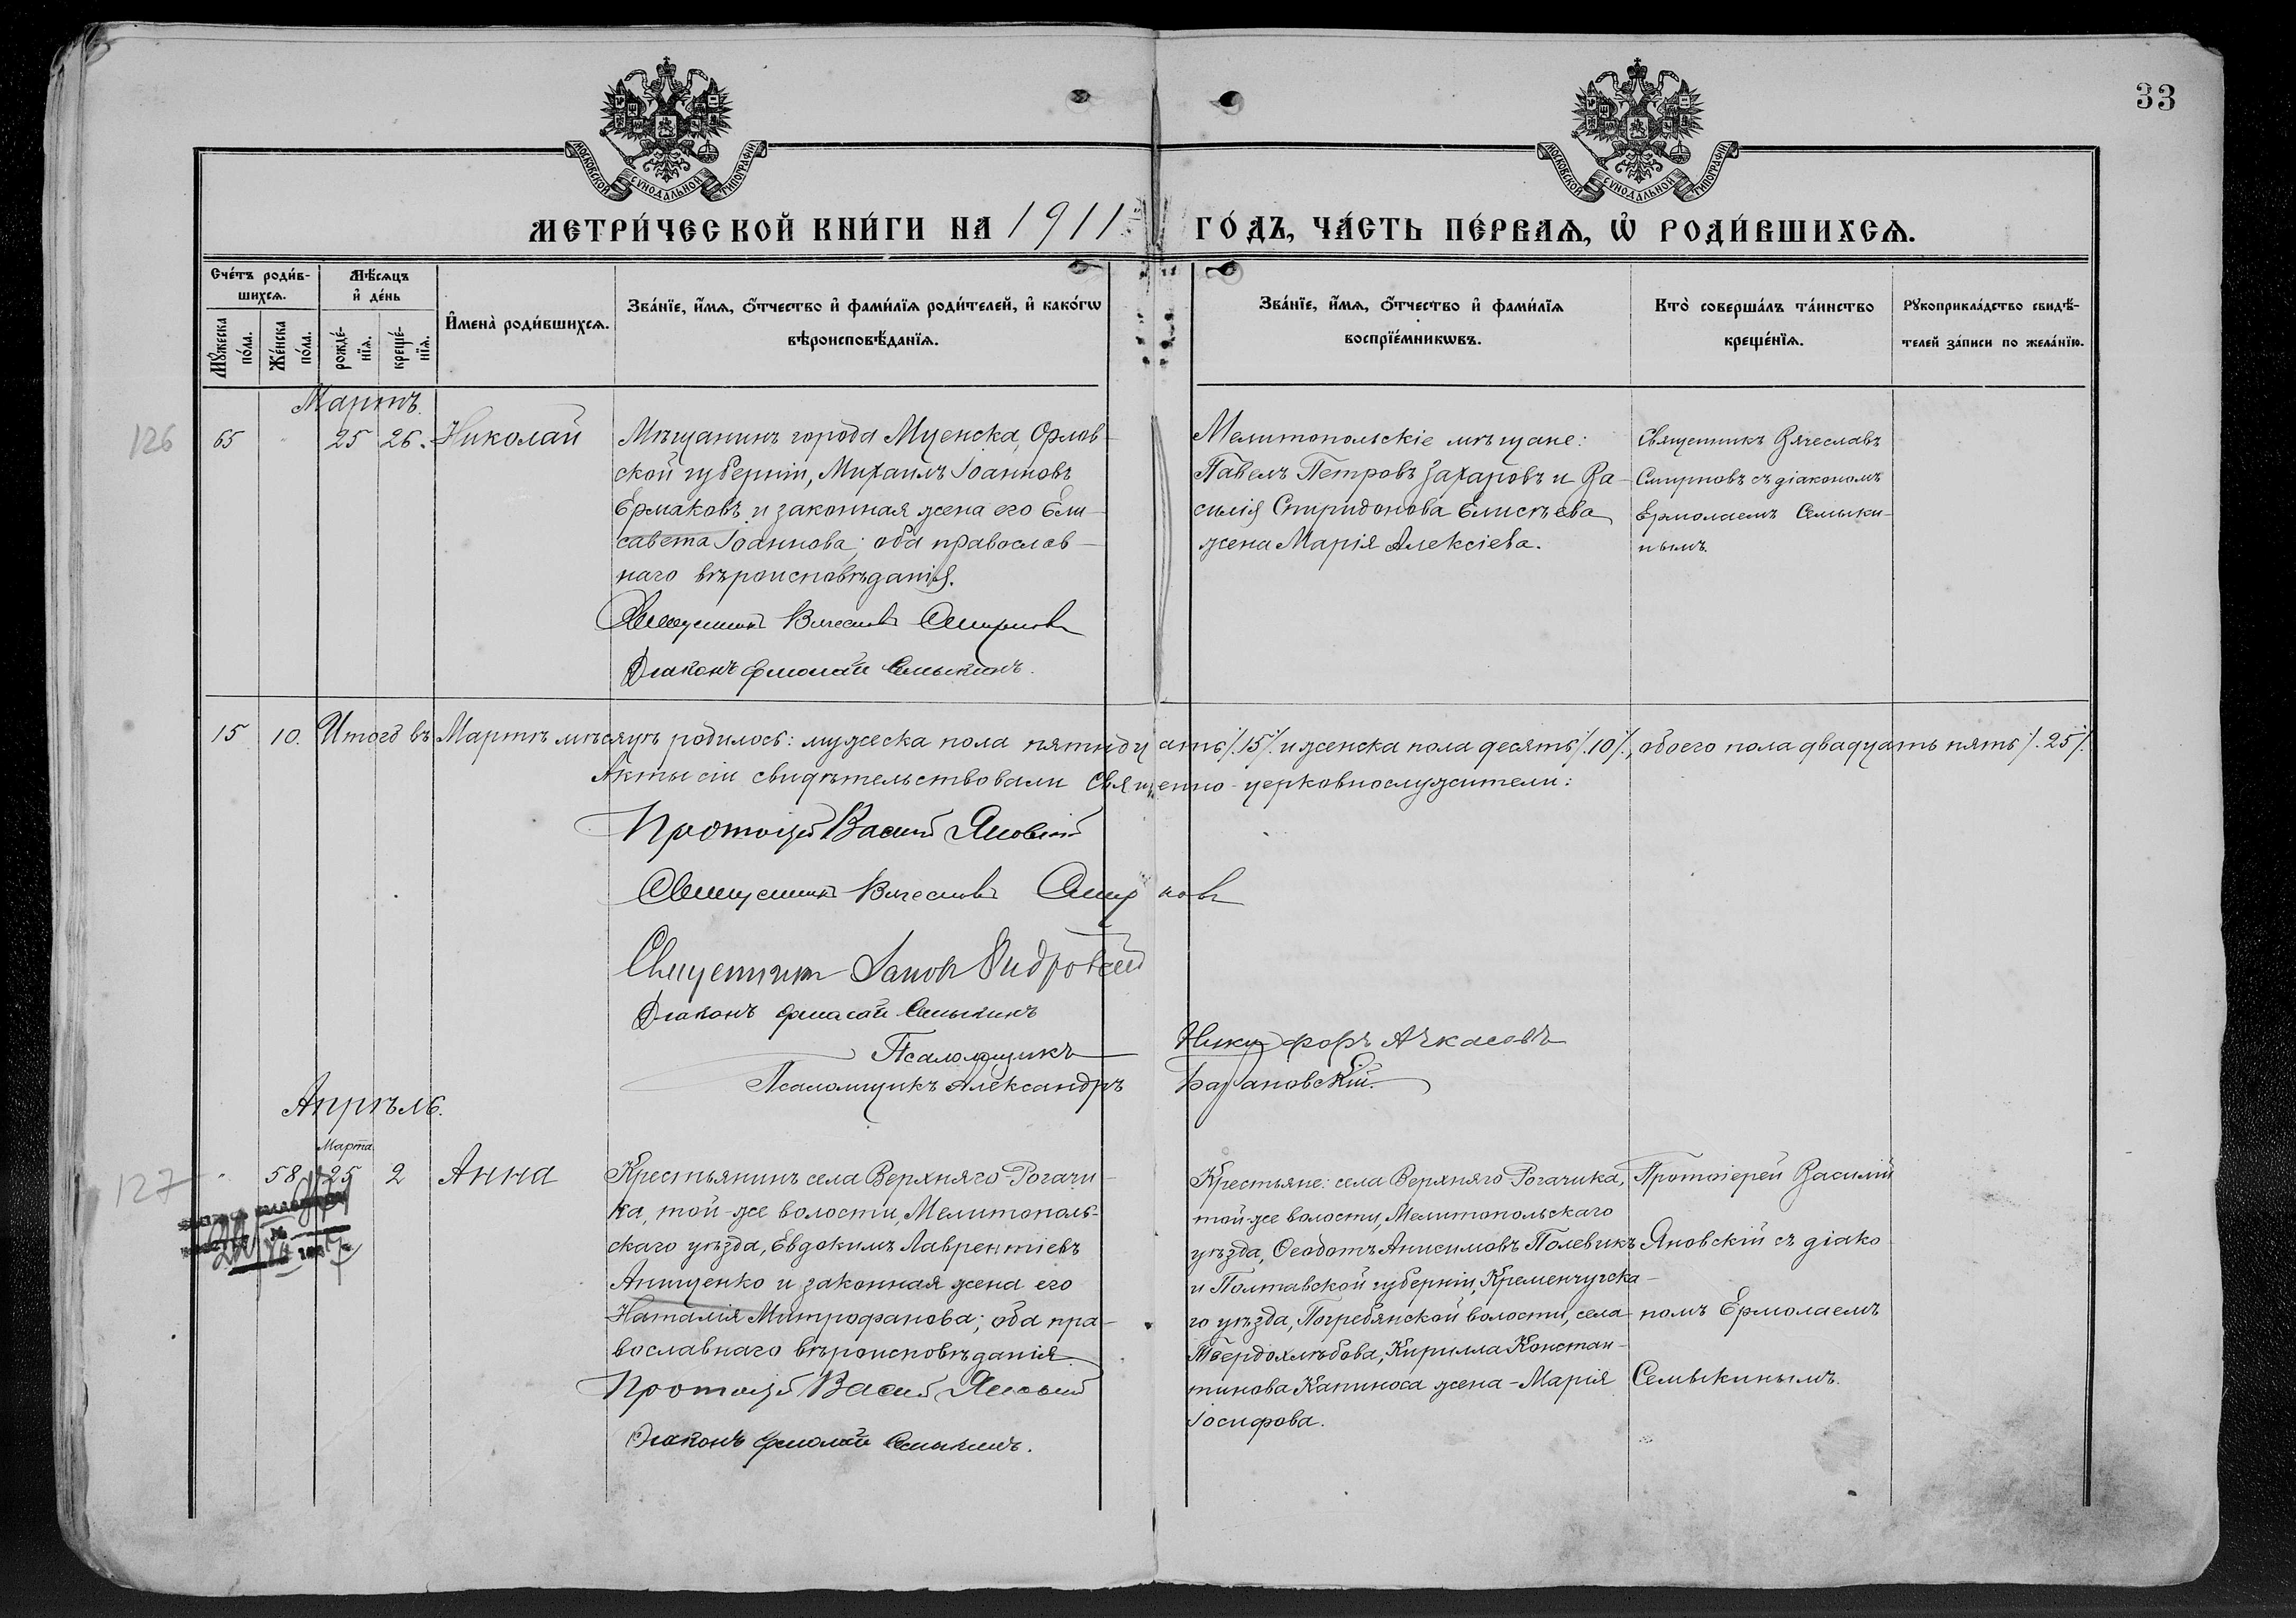 33
МОСКОВСКОЙ СѴНОДАЛЬНОЙ ТИПОГРАФІИ
МОСКОВСКОЙ СѴНОДАЛЬНОЙ ТИПОГРАФІИ
МЕТРИ́ЧЕСКОЙ КНИ́ГИ НА 1911 ГО́ДЪ, ЧА́СТЬ ПЕ́РВАѦ, Ѡ҆ РОДИ́ВШИХСѦ.
Сче́тъ роди́в-
шихсѧ.
Мꙋ́жеска
по́ла.
Же́нска
по́ла.
Мѣ́сѧцъ
и҆ де́нь
рожде́-
нїѧ.
креще́-
нїѧ.
И҆мена̀ роди́вшихсѧ.
Зва́нїе, и҆́мѧ, ѻ҆́тчество и҆ фами́лїѧ роди́телей, и҆ како́гѡ
вѣроисповѣ́данїѧ.
Зва́нїе, и҆́мѧ, ѻ҆́тчество и҆ фами́лїѧ
воспрїе́мникѡвъ.
Кто̀ соверша́лъ та́инство
креще́нїѧ.
Рꙋкоприкла́дство свидѣ́-
телей за́писи по жела́нїю.
Мартъ.
126
65 " 25 26. Николай
Мѣщанинъ города Мценска, Орлов-
ской губерніи, Михаилъ Іоанновъ
Ермаковъ и законная жена его Ели-
савета Іоаннова; оба православ-
наго вѣроисповѣданія.
Священникъ Вячеславъ Смирновъ
Діаконъ Ермолай Семыкинъ.
Мелитопольскіе мѣщане:
Павелъ Петровъ Захаровъ и Ва-
силія Спиридонова Елисѣева
жена Марія Алексіева.
Священникъ Вячеславъ
Смирновъ съ діакономъ
Ермолаемъ Семыки-
нымъ.
15 10. Итого въ Мартѣ мѣсяцѣ родилось: мужеска пола пятнадцать /.15/. и женска пола десять /.10/., обоего пола двадцать пять /.25/.
Акты сіи свидѣтельствовали Священно-церковнослужители:
Протоіерей Василій Яновскій
Священникъ Вячеславъ Смирновъ
Священникъ
Діаконъ Ермолай Семыкинъ
Псаломщикъ Никифоръ Ачкасовъ
Псаломщикъ Александръ Барановскій.
Апрѣль.
Марта
127
" 58 25 2 Анна
Крестьянинъ села Верхняго-Рогачи-
ка, той-же волости, Мелитополь-
скаго уѣзда, Евдокимъ Лаврентіевъ
Анищенко и законная жена его
Наталія Митрофанова; оба пра-
вославнаго вѣроисповѣданія.
Протоіерей Василій Яновскій
Діаконъ Ермолай Семыкинъ.
Крестьяне: села Верхняго-Рогачика,
той-же волости, Мелитопольскаго
уѣзда, Ѳеодотъ Анисимовъ Полевикъ
и Полтавской губерніи, Кременчугска-
го уѣзда, Погребянской волости, села
Твердохлѣбова, Кирилла Констан-
тинова Капиноса жена - Марія
Іосифова.
Протоіерей Василій
Яновскій съ діако-
номъ Ермолаемъ
Семыкинымъ.